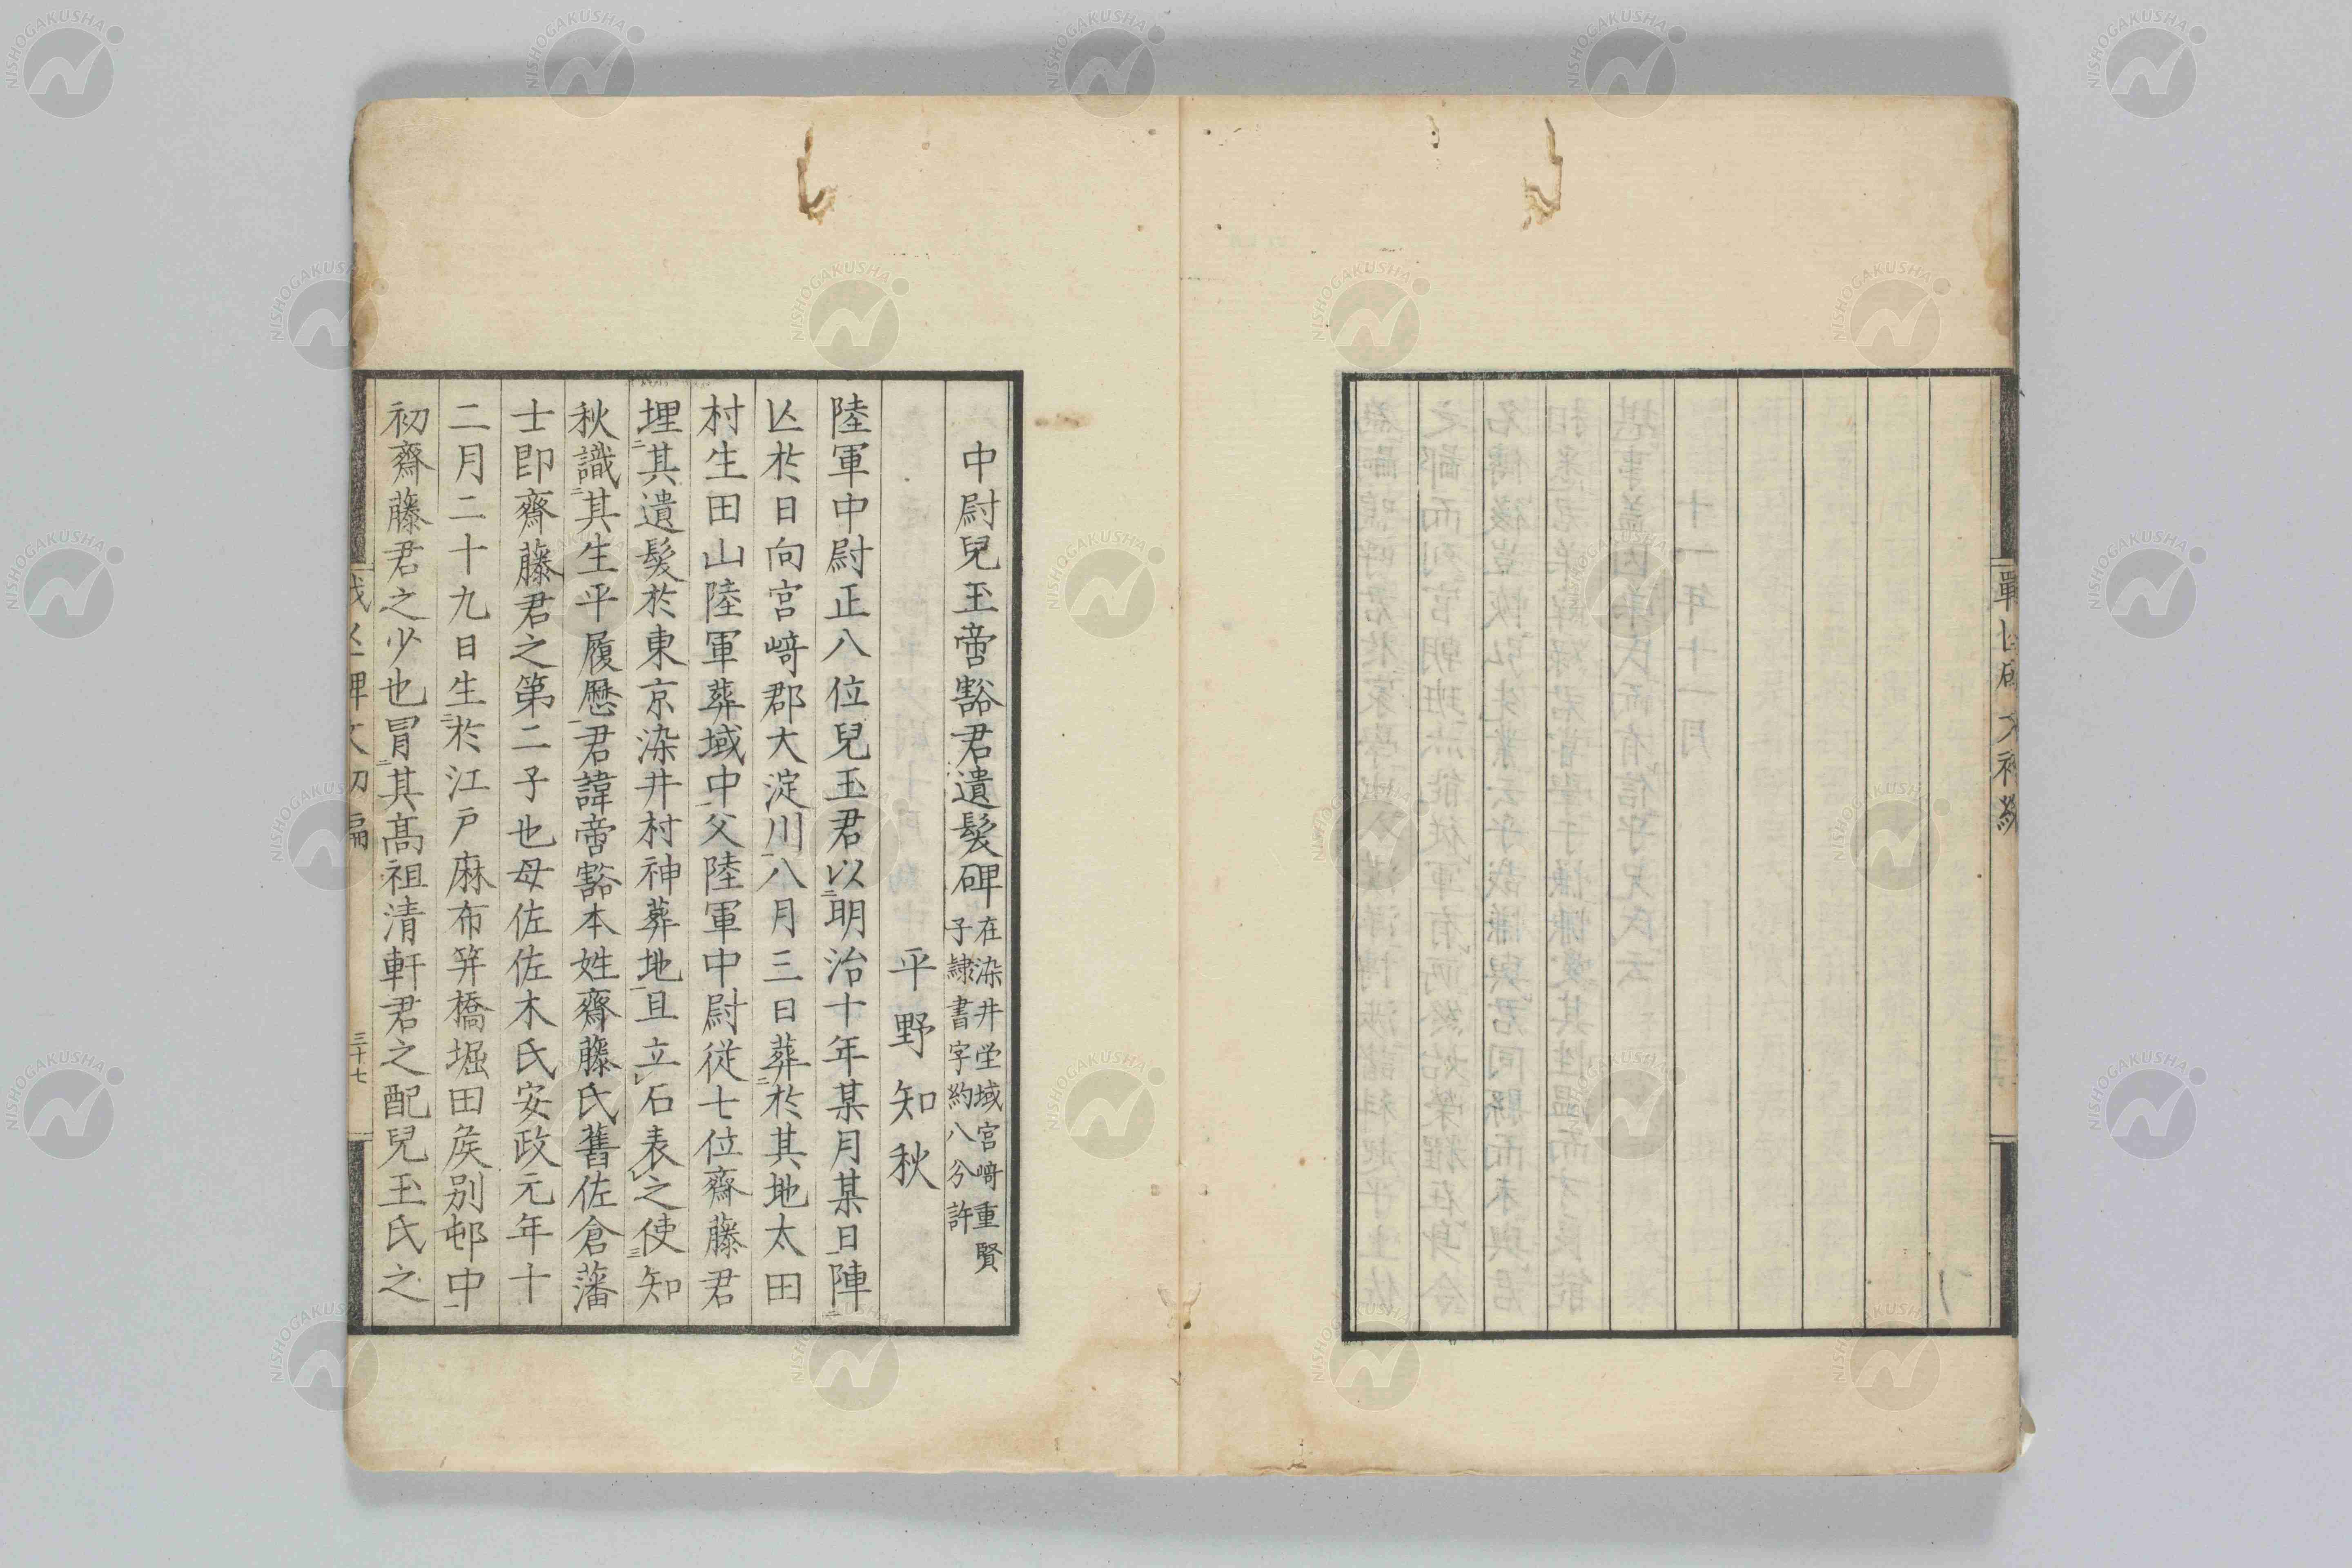 中尉兒玉啻豁君遺髮碑 在染井塋域宮﨑重賢
子隷書字約八分許
平野知秋
陸軍中尉正八位兒玉君以明治十年某月某日陣
亾於日向宮﨑郡大淀川八月三日葬於其地太田
村生田山陸軍葬域中父陸軍中尉従七位齋藤君
埋其遺髮於東京染井村神葬地且立石表之使知
秋識其生平履歷君諱啻豁本姓齋藤氏舊佐倉藩
士即齋藤君之第二子也母佐佐木氏安政元年十
二月二十九日生於江戸麻布笄橋堀田矦別邸中
初齋藤君之少也冒其髙祖清軒君之配兒玉氏之
三十七
NISHOGAKUSHA